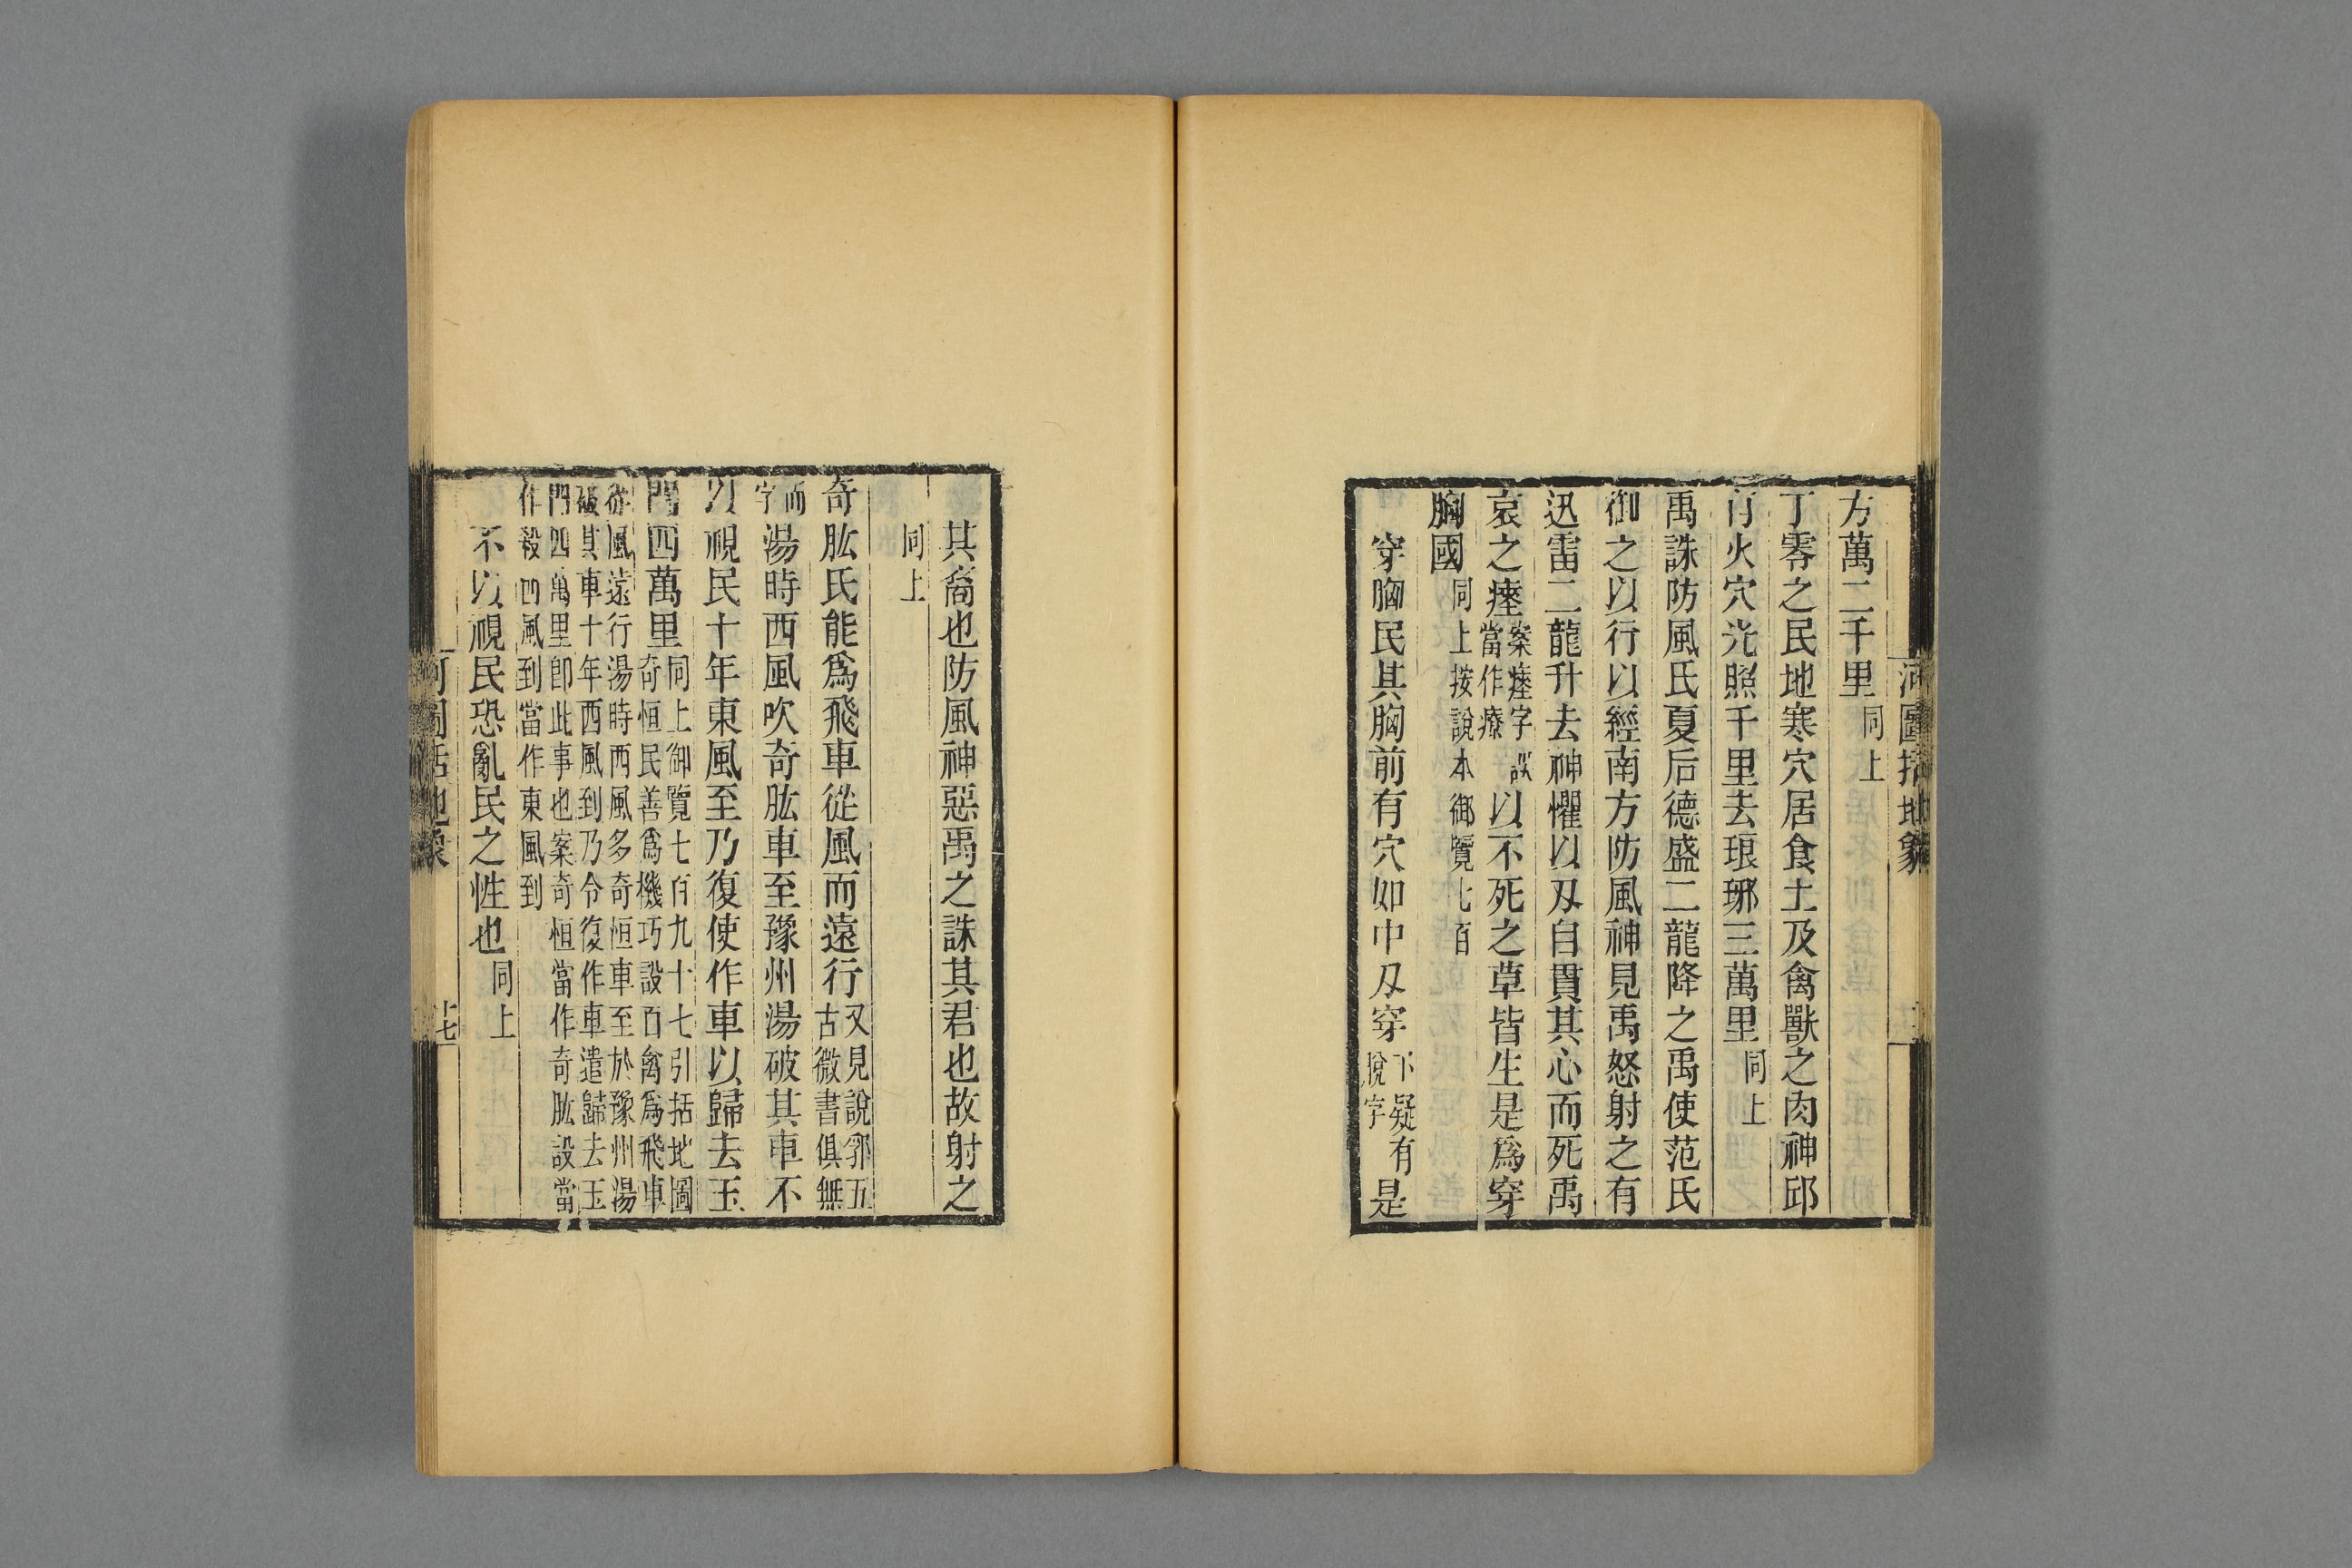 河圖括地象
方萬二千里同上
丁零之民地寒穴居食土及禽獸之肉神邱
有火穴光照千里去琅琊三萬里同上
禹誅防風氏夏后德盛二龍降之禹使范氏
御之以行以經南方防風神見禹怒射之有
迅雷二龍升去神懼以刄自貫其心而死禹
哀之瘞案瘞字誤當作療以不死之草皆生是爲穿
胸國同上按說本御覽七百
穿胸民其胸前有穴如中刄穿下疑有脫字是
其裔也防風神惡禹之誅其君也故射之
同上
奇肱氏能爲飛車從風而遠行又見說郛五古微書俱無
而字湯時西風吹奇肱車至豫州湯破其車不
以視民十年東風至乃復使作車以歸去玉
門四萬里同上御覽七百九十七引括地圖
奇恒民善爲機巧設百禽爲飛車
從風遠行湯時西風多奇恒車至於豫州湯
破其車十年西風到乃令復作車遣歸去玉
門四萬里卽此事也案奇恒當作奇肱設當
作殺西風到當作東風到
不以視民恐亂民之性也同上
河圖括地象
十七